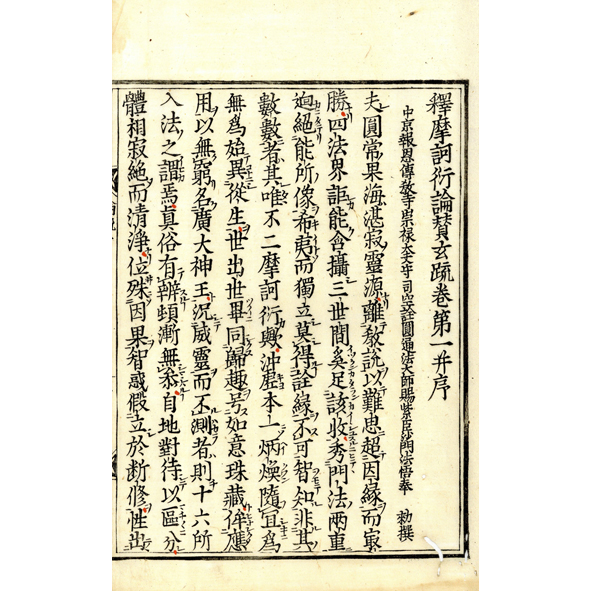 釋摩訶衍論賛玄疏卷第一并序
中京報恩傳教寺崇禄大夫守司空詮圓通法大師賜紫臣沙門法悟奉 勑撰
夫圓常果海湛寂靈源離教說以難思超因緣而寂
勝四法界詎能含攝三世間奚足該收秀門法兩重
逈絕能所像希夷而獨立莫得詮緣不可智知非其
數數者其唯不二摩訶衍歟沖虛本一炳煥隨冝爲
無爲始異從生世出世畢同歸趣号如意珠藏侔應
用以無窮名廣大神王況威靈而不測者則十六所
入法之謂焉真俗有辨頓漸無忝自地對待以區分
體相寂絕而清淨位殊因果智惑假立於断修性出